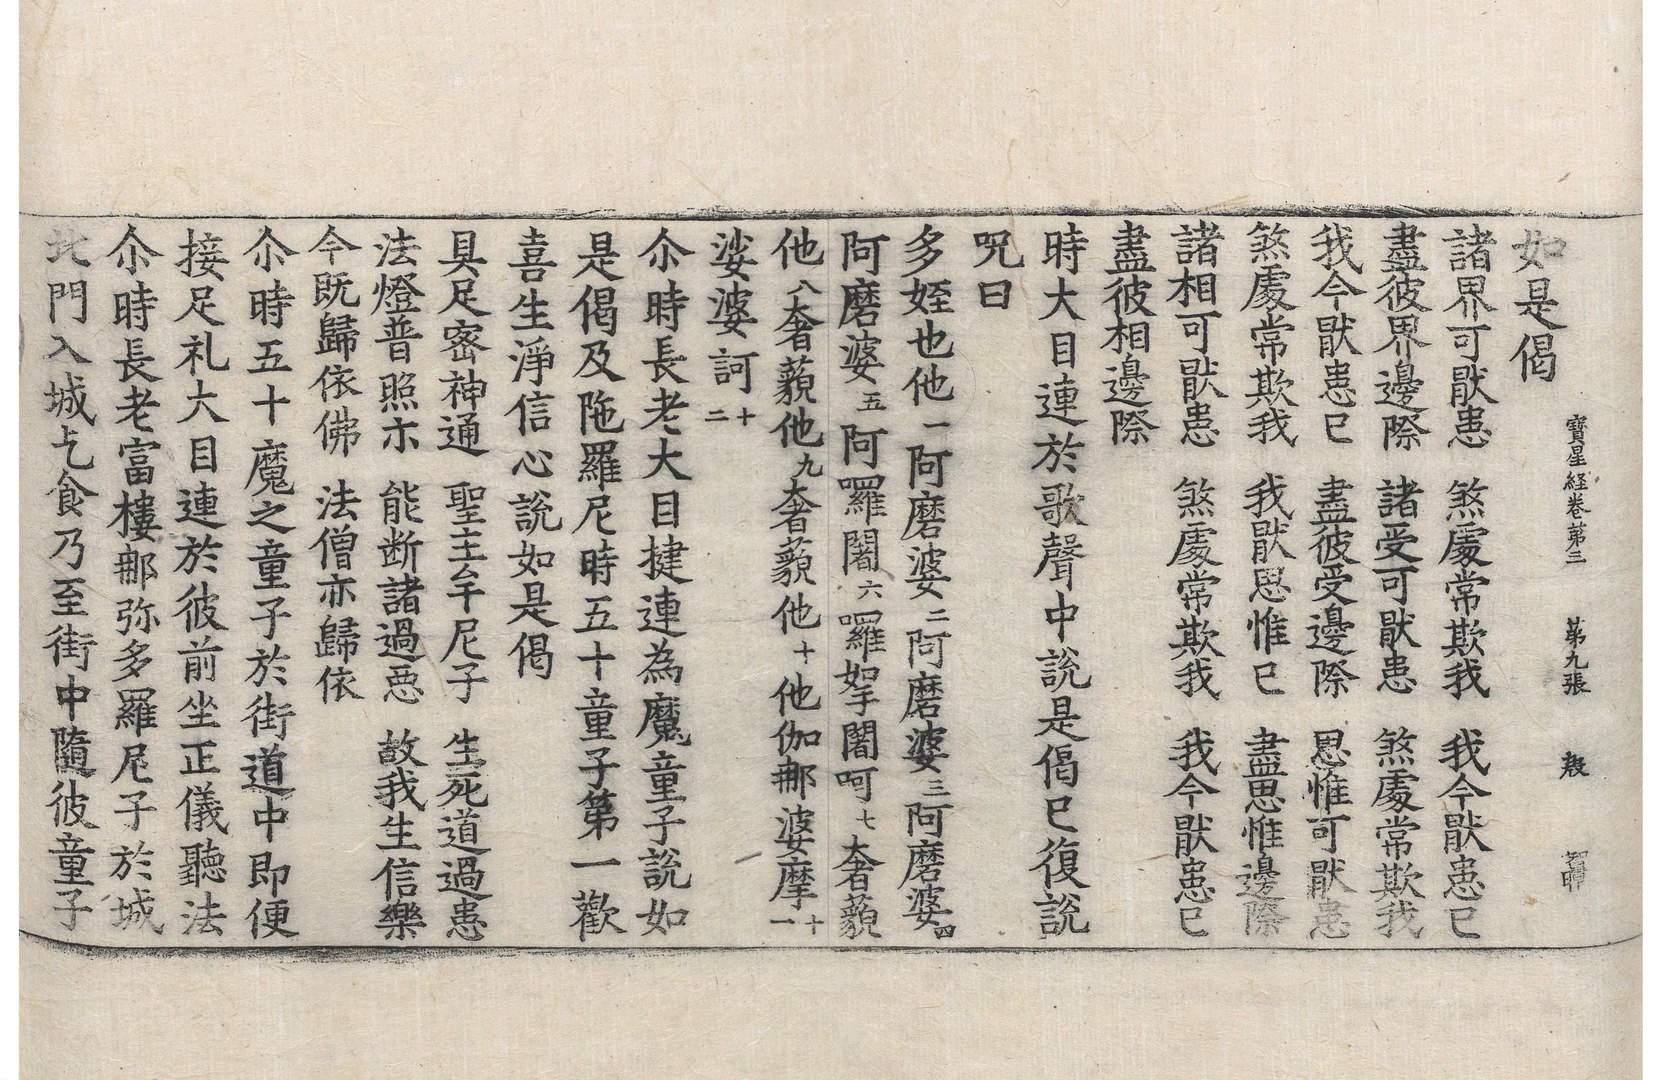 寶星経卷苐三 苐九張 㲉
如是偈
諸界可猒患 煞處常欺我 我今猒患已
盡彼界邊際 諸受可猒患 煞處常欺我
我今猒患已 盡彼受邊際 思惟可猒患
煞處常欺我 我猒思惟已 盡思惟邊際
諸相可猒患 煞處常欺我 我今猒患已
盡彼相邊際
時大目連於歌聲中說是偈已復說
呪曰
多姪也他一阿磨婆二阿磨婆三阿磨婆四
阿磨婆五阿囉闍六囉拏闍呵七奢藐
他八奢藐他九奢藐他十他伽那婆摩十一
娑婆訶十二
尒時長老大目揵連為魔童子說如
是偈及陁羅尼時五十童子第一歡
喜生淨信心說如是偈
具足密神通 聖主牟尼子 生死道過患
法燈普照示 能断諸過惡 故我生信樂
今既歸依佛 法僧亦歸依
尒時五十魔之童子於街道中即便
接足礼大目連於彼前坐正儀聽法
尒時長老富樓那弥多羅尼子於城
北門入城乞食乃至街中隨彼童子